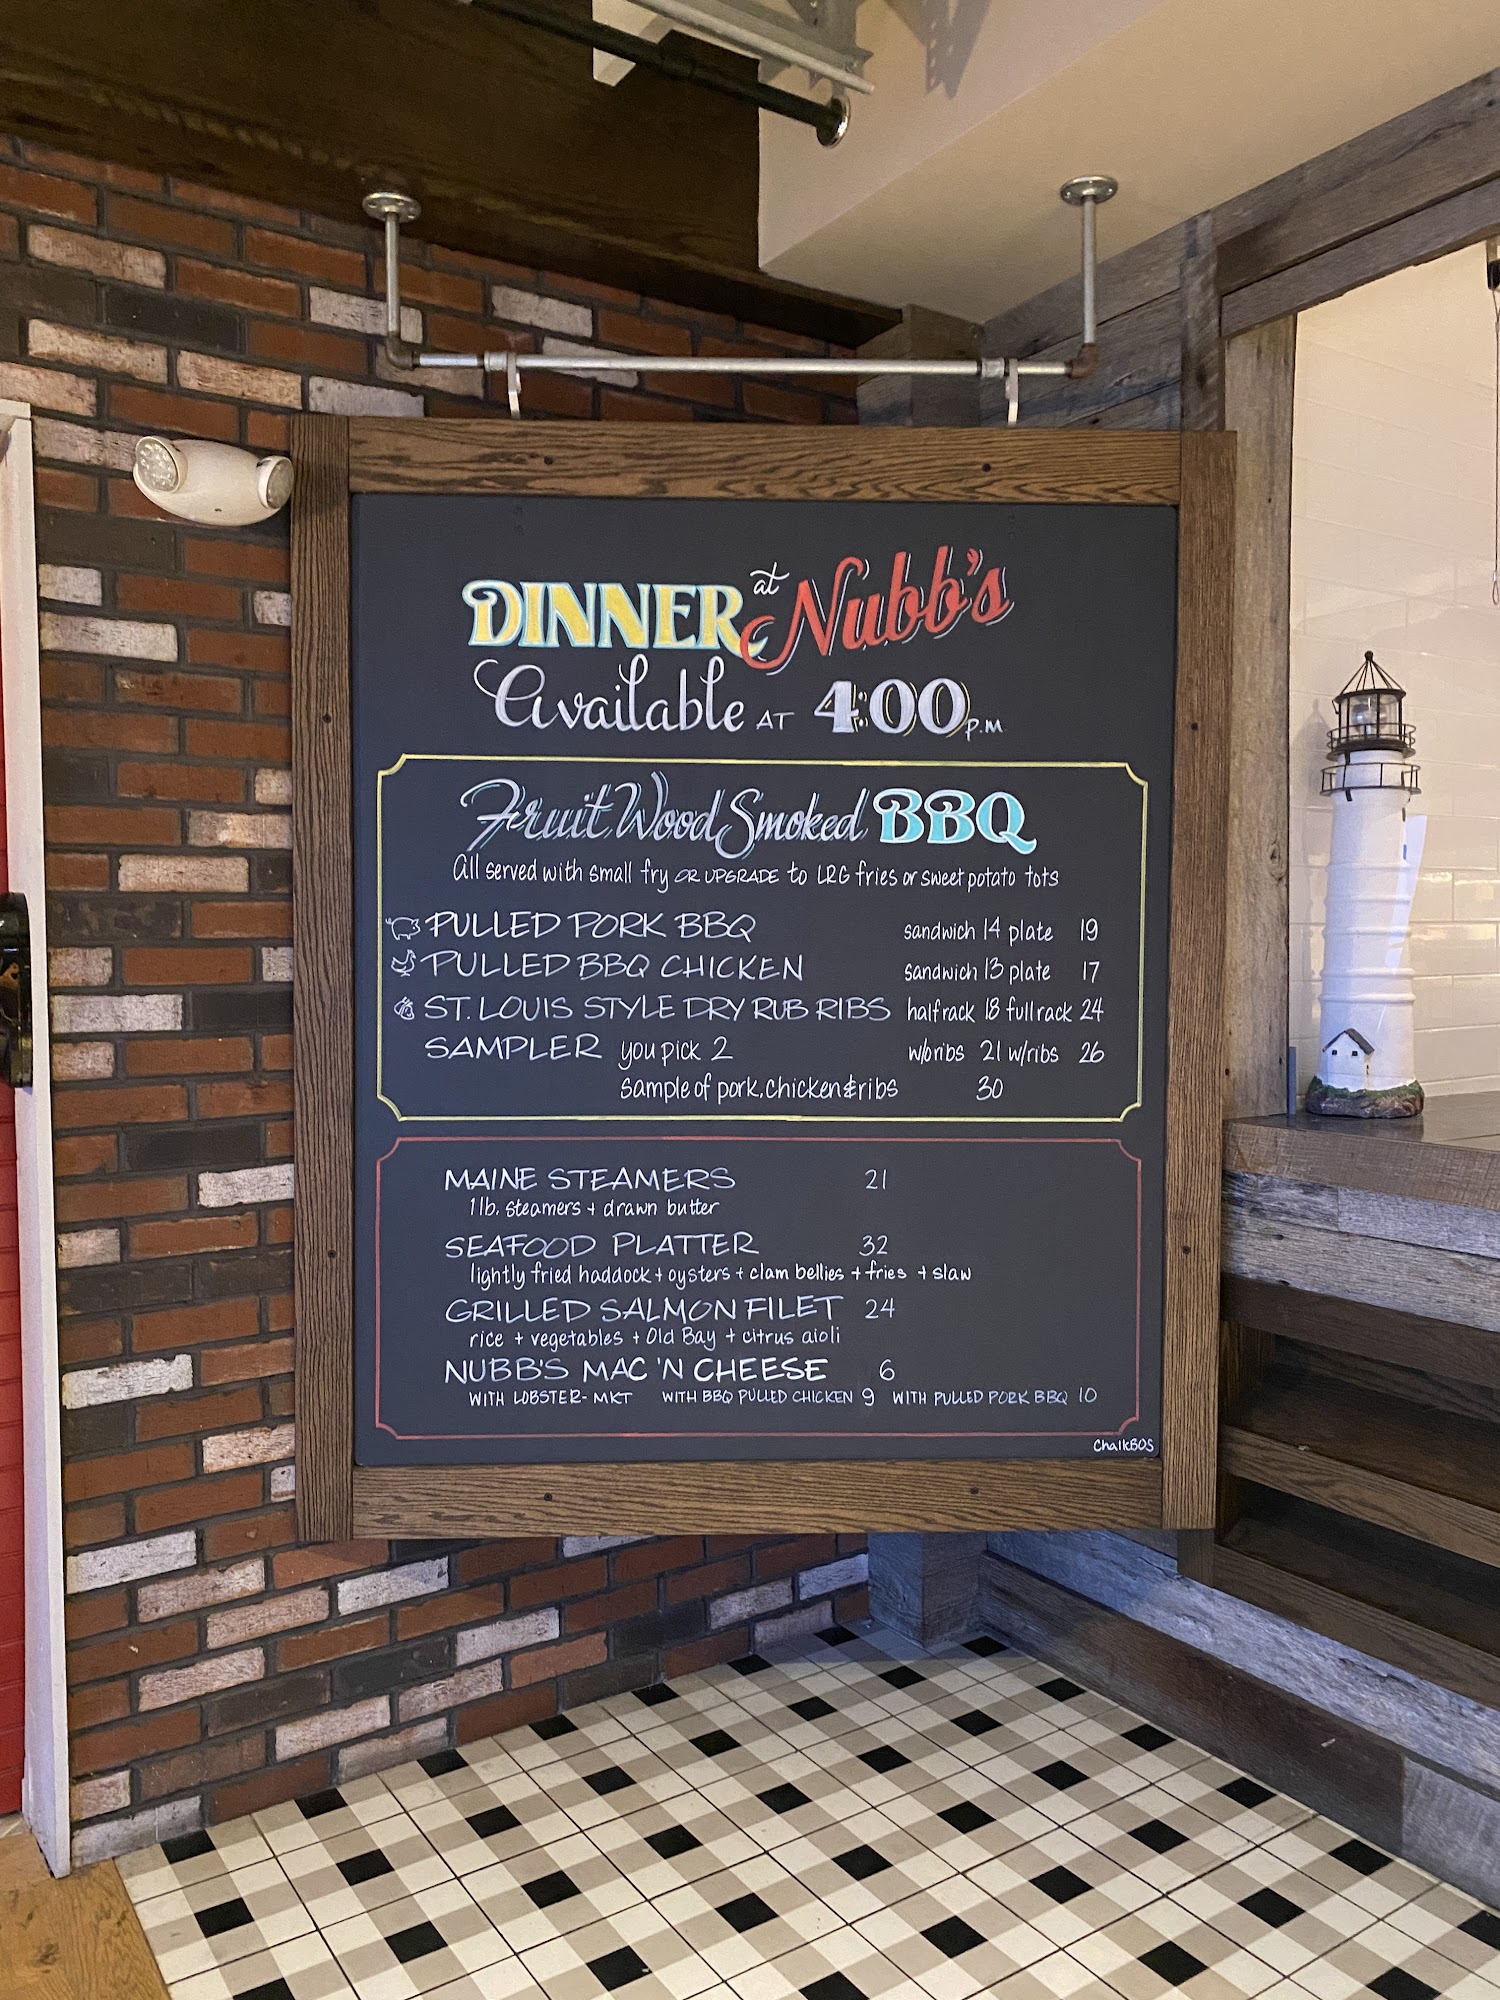 DINNER at Nubb's
Available AT 4:00 P.M.
Fruit Wood Smoked BBQ
All served with small fry OR UPGRADE to LRG fries or sweet potato tots
PULLED PORK BBQ sandwich 14 plate 19
PULLED BBQ CHICKEN sandwich 13 plate 17
ST. LOUIS STYLE DRY RUB RIBS half rack 18 full rack 24
SAMPLER you pick 2 w/o ribs 21 w/ribs 26
sample of pork, chicken & ribs 30
MAINE STEAMERS 21
1 lb. steamers + drawn butter
SEAFOOD PLATTER 32
lightly fried haddock + oysters + clam bellies + fries + slaw
GRILLED SALMON FILET 24
rice + vegetables + Old Bay + citrus aioli
NUBB'S MAC 'N CHEESE 6
WITH LOBSTER- MKT WITH BBQ PULLED CHICKEN 9 WITH PULLED PORK BBQ 10
ChalkBOS